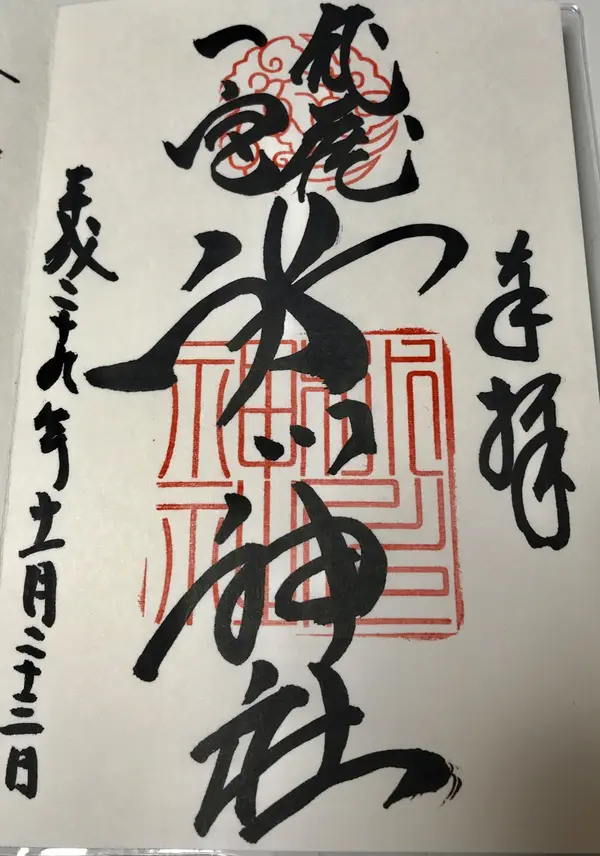 奉拝
武蔵
一宮
氷川神社
平成二十九年十一月二十三日